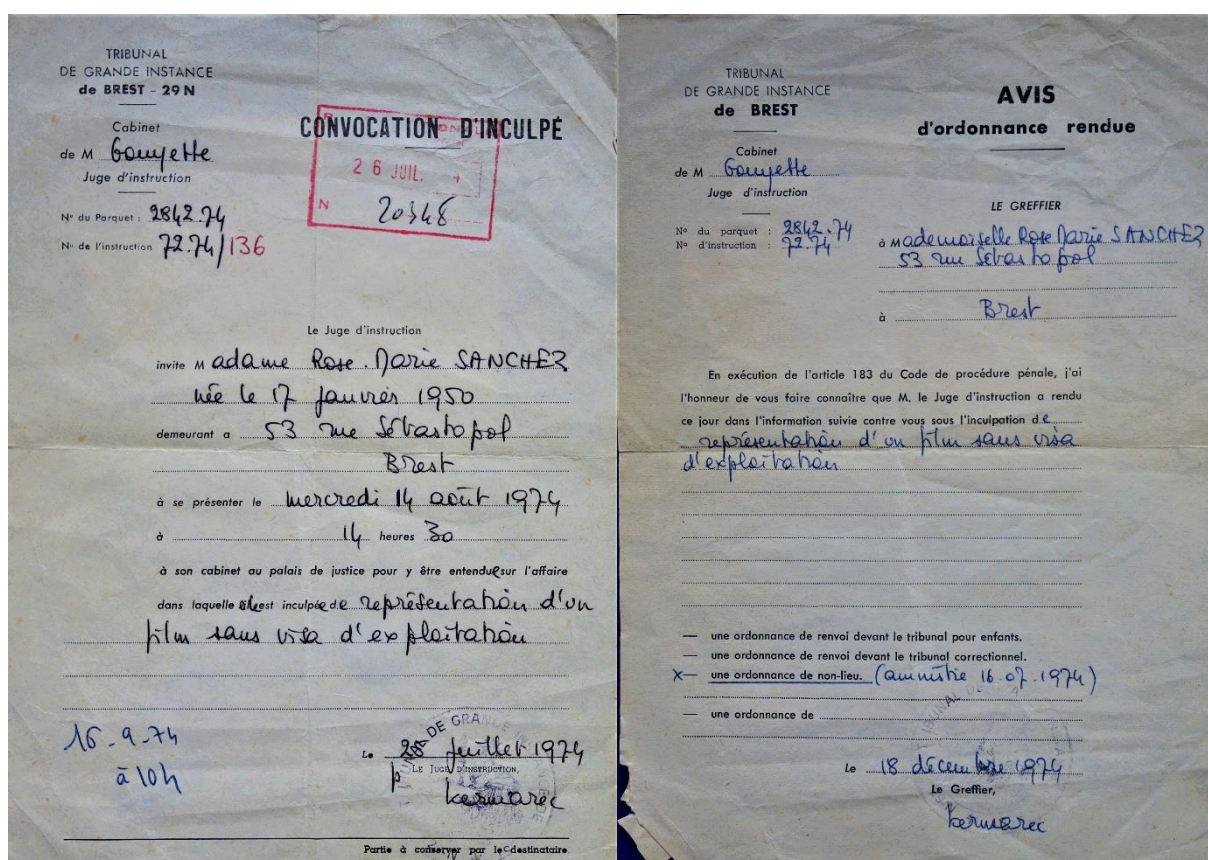 TRIBUNAL
DE GRANDE INSTANCE
de BREST - 29 N
Cabinet
de M Gouyette
Juge d'instruction
N° du Parquet : 2842.74
N° de l'instruction 72.74/136
CONVOCATION D'INCULPÉ
26 JUIL.
N 20348
Le Juge d'instruction
invite M adame Rose.Marie SANCHEZ
née le 17 janvier 1950
demeurant a 53 rue Sébastopol
Brest
à se présenter le mercredi 14 août 1974
à 14 heures 30
à son cabinet au palais de justice pour y être entendue sur l'affaire
dans laquelle elle est inculpée de représentation d'un
film sans visa d'exploitation
16-9-74
à 10h
TRIBUNAL DE GRANDE
Le Juillet 1974
p LE JUGE D'INSTRUCTION,
Kermarec
Partie à conserver par le destinataire
TRIBUNAL
DE GRANDE INSTANCE
de BREST
Cabinet
de M Gouyette
Juge d'instruction
N° du parquet : 2842.74
N° d'instruction : 72.74
AVIS
d'ordonnance rendue
LE GREFFIER
à Mademoiselle Rose Marie SANCHEZ
53 rue Sébastopol
à Brest
En exécution de l'article 183 du Code de procédure pénale, j'ai
l'honneur de vous faire connaître que M. le Juge d'instruction a rendu
ce jour dans l'information suivie contre vous sous l'inculpation de
représentation d'un film sans visa
d'exploitation
— une ordonnance de renvoi devant le tribunal pour enfants.
— une ordonnance de renvoi devant le tribunal correctionnel.
x— une ordonnance de non-lieu. (amnistie 16.07.1974)
— une ordonnance de
Le 18 décembre 1974
Le Greffier,
Kermarec